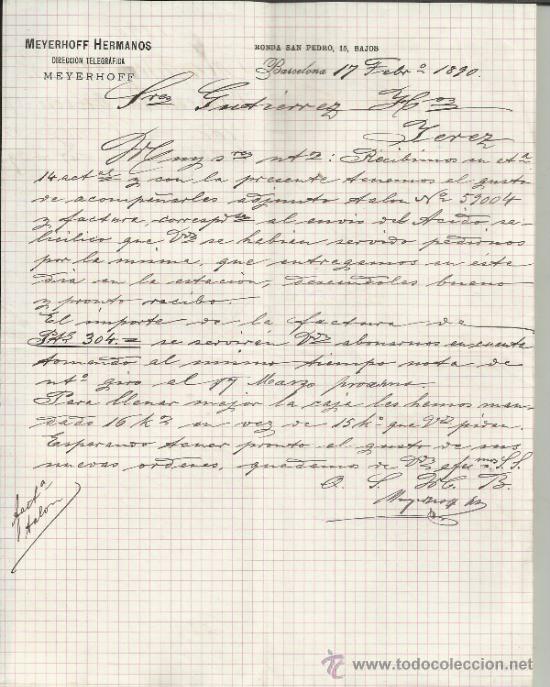 MEYERHOFF HERMANOS
DIRECCION TELEGRÁFICA
MEYERHOFF
RONDA SAN PEDRO, 15, BAJOS
Barcelona 17 Febro 1890.
Sres Gutierrez Hos
Jerez
Muy sres ntos: Recibimos su eta
14 actal y con la presente tenemos el gusto
de acompañarles adjunto talon No 59004
y factura, correspte al envio del Acido
que Vds se habian servido pedirnos
por la misma, que entregamos en este
dia en la estacion, deseandoles bueno
y pronto recibo.
El importe de la factura de
Pts 304.= se serviran Vds abonarnos en cuenta
tomando al mismo tiempo nota de
nto giro al 19 Marzo proximo.
Para llenar mejor la caja les hemos man-
dado 16 ks en vez de 15 ks que Vds pedian.
Esperando tener pronto el gusto de sus
nuevas ordenes, quedamos de Vds afmos S.S.
Q. S. M. B.
Meyerhoff Hos
facta
talon
todocoleccion
www.todocoleccion.net